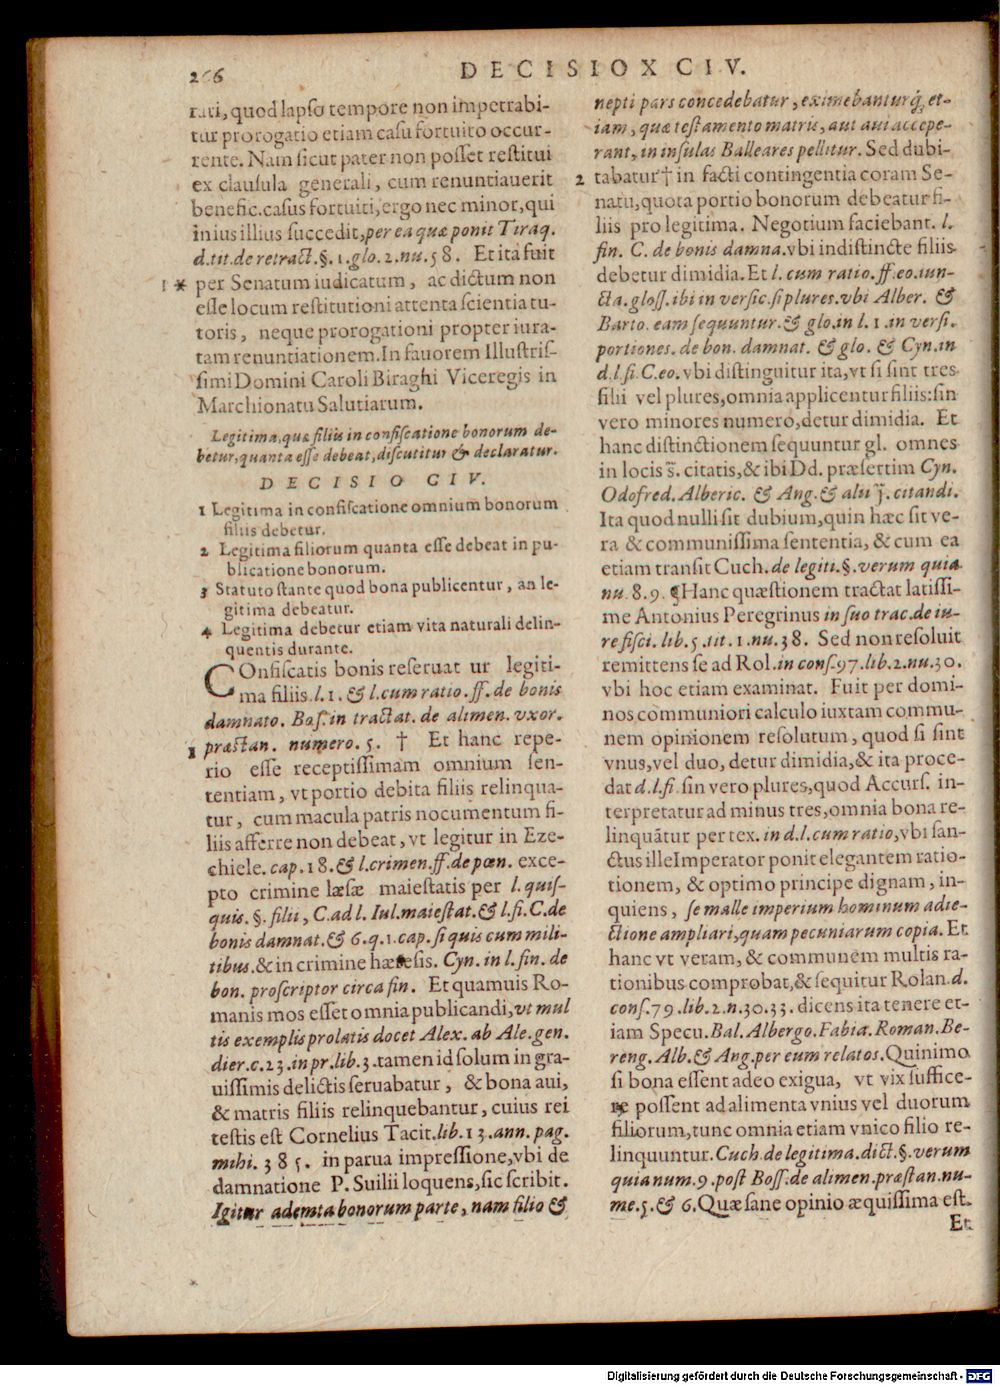 266
DECISIO X CIV.
rari, quod lapso tempore non impetrabi-
tur prorogatio etiam casu fortuito occur-
rente. Nam sicut pater non posset restitui
ex clausula generali, cum renuntiauerit
benefic. casus fortuiti, ergo nec minor, qui
in ius illius succedit, per ea quæ ponit Tiraq.
d. tit. de retract. §. 1. glo. 2. nu. 58. Et ita fuit
1 * per Senatum iudicatum, ac dictum non
esse locum restitutioni attenta scientia tu-
toris, neque prorogationi propter iura-
tam renuntiationem. In fauorem Illustris-
simi Domini Caroli Biraghi Viceregis in
Marchionatu Salutiarum.
Legitima, quæ filiis in confiscatione bonorum de-
betur, quanta esse debeat, discutitur & declaratur.
DECISIO CIV.
1 Legitima in confiscatione omnium bonorum
filiis debetur.
2 Legitima filiorum quanta esse debeat in pu-
blicatione bonorum.
3 Statuto stante quod bona publicentur, an le-
gitima debeatur.
4 Legitima debetur etiam vita naturali delin-
quentis durante.
COnfiscatis bonis reseruat ur legiti-
ma filiis l. 1. & l. cum ratio. ff. de bonis
damnato. Bas. in tractat. de alimen. vxor.
1 præstan. numero. 5. † Et hanc repe-
rio esse receptissimam omnium sen-
tentiam, vt portio debita filiis relinqua-
tur, cum macula patris nocumentum fi-
liis afferre non debeat, vt legitur in Eze-
chiele. cap. 18. & l. crimen. ff. de pœn. exce-
pto crimine læsæ maiestatis per l. quis-
quis. §. filii, C. ad l. Iul. maiestat. & l. fi. C. de
bonis damnat. & 6. q. 1. cap. si quis cum mili-
tibus. & in crimine hæresis. Cyn. in l. fin. de
bon. proscriptor circa fin. Et quamuis Ro-
manis mos esset omnia publicandi, vt mul
tis exemplis prolatis docet Alex. ab Ale. gen.
dier. c. 23. in pr. lib. 3. tamen id solum in gra-
uissimis delictis seruabatur, & bona aui,
& matris filiis relinquebantur, cuius rei
testis est Cornelius Tacit. lib. 13. ann. pag.
mihi. 385. in parua impressione, vbi de
damnatione P. Suilii loquens, sic scribit.
Igitur ademta bonorum parte, nam filio &
nepti pars concedebatur, eximebanturq́; et-
iam, quæ testamento matris, aut aui accepe-
rant, in insulas Balleares pellitur. Sed dubi-
2 tabatur † in facti contingentia coram Se-
natu, quota portio bonorum debeatur fi-
liis pro legitima. Negotium faciebant. l.
fin. C. de bonis damna. vbi indistincte filiis
debetur dimidia. Et l. cum ratio. ff. eo. iun-
cta. gloss. ibi in versic. si plures. vbi Alber. &
Barto. eam sequuntur. & glo. in l. 1. in versi.
portiones. de bon. damnat. & glo. & Cyn. in
d. l. fi. C. eo. vbi distinguitur ita, vt si sint tres
filii vel plures, omnia applicentur filiis: sin
vero minores numero, detur dimidia. Et
hanc distinctionem sequuntur gl. omnes
in locis s̃. citatis, & ibi Dd. præsertim Cyn.
Odofred. Alberic. & Ang. & alii j̃. citandi.
Ita quod nulli sit dubium, quin hæc sit ve-
ra & communissima sententia, & cum ea
etiam transit Cuch. de legiti. §. verum quia
nu. 8. 9. ¶ Hanc quæstionem tractat latissi-
me Antonius Peregrinus in suo trac. de iu-
re fisci. lib. 5. tit. 1. nu. 38. Sed non resoluit
remittens se ad Rol. in cons. 97. lib. 2. nu. 30.
vbi hoc etiam examinat. Fuit per domi-
nos communiori calculo iuxtam commu-
nem opinionem resolutum, quod si sint
vnus, vel duo, detur dimidia, & ita proce-
dat d. l. fi. sin vero plures, quod Accurs. in-
terpretatur ad minus tres, omnia bona re-
linquãtur per tex. in d. l. cum ratio, vbi san-
ctus ille Imperator ponit elegantem ratio-
tionem, & optimo principe dignam, in-
quiens, se malle imperium hominum adie-
ctione ampliari, quam pecuniarum copia. Et
hanc vt veram, & communem multis ra-
tionibus comprobat, & sequitur Rolan. d.
cons. 79. lib. 2. n. 30. 33. dicens ita tenere et-
iam Specu. Bal. Albergo. Fabia. Roman. Be-
reng. Alb. & Ang. per eum relatos. Quinimo
si bona essent adeo exigua, vt vix suffice-
re possent ad alimenta vnius vel duorum
filiorum, tunc omnia etiam vnico filio re-
linquuntur. Cuch. de legitima. dict. §. verum
quia num. 9. post Boss. de alimen. præstan. nu-
me. 5. & 6. Quæ sane opinio æquissima est.
Et
Digitalisierung gefördert durch die Deutsche Forschungsgemeinschaft - DFG